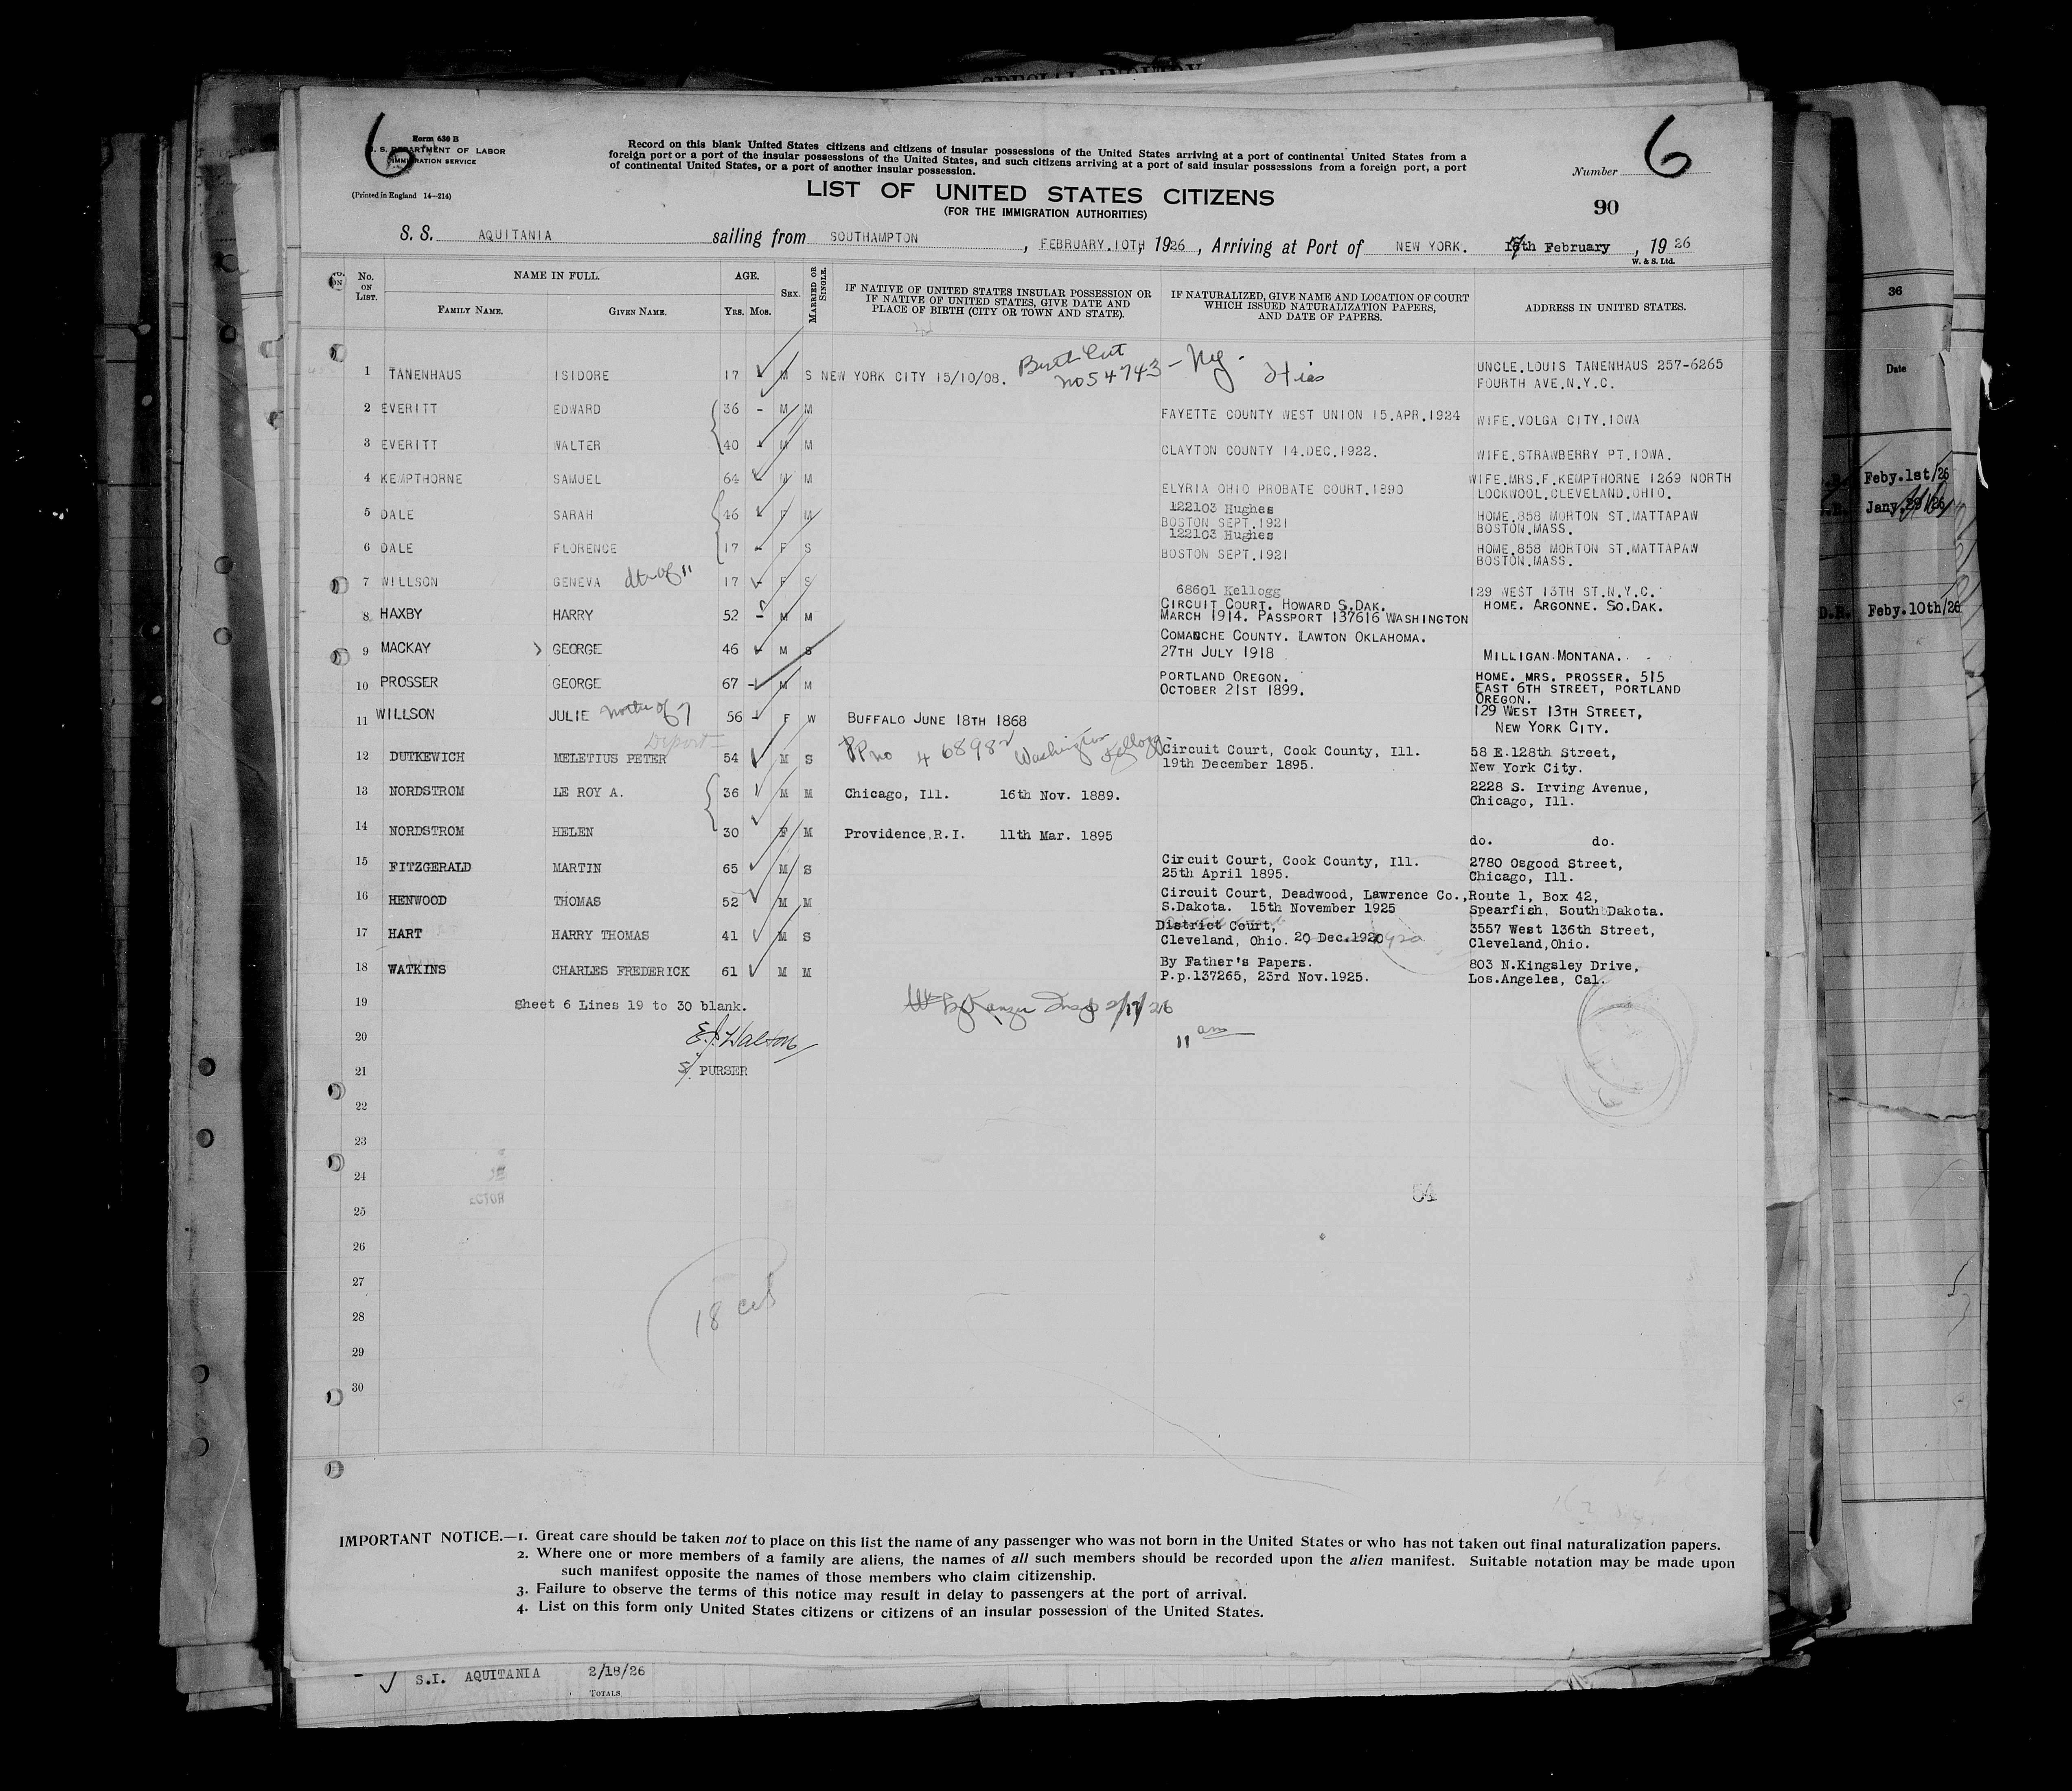 6
Form 630 B
U. S. DEPARTMENT OF LABOR
IMMIGRATION SERVICE
(Printed in England 14—214)
Record on this blank United States citizens and citizens of insular possessions of the United States arriving at a port of continental United States from a
foreign port or a port of the insular possessions of the United States, and such citizens arriving at a port of said insular possessions from a foreign port, a port
of continental United States, or a port of another insular possession.
Number 6
LIST OF UNITED STATES CITIZENS
(FOR THE IMMIGRATION AUTHORITIES)
90
S. S. AQUITANIA sailing from SOUTHAMPTON, FEBRUARY.10TH, 1926, Arriving at Port of NEW YORK. 17th February, 1926
W. & S. Ltd.
No. ON LIST. NAME IN FULL. FAMILY NAME. GIVEN NAME. AGE. YRS. MOS. SEX. MARRIED OR SINGLE.
IF NATIVE OF UNITED STATES INSULAR POSSESSION OR
IF NATIVE OF UNITED STATES, GIVE DATE AND
PLACE OF BIRTH (CITY OR TOWN AND STATE).
IF NATURALIZED, GIVE NAME AND LOCATION OF COURT
WHICH ISSUED NATURALIZATION PAPERS,
AND DATE OF PAPERS.
ADDRESS IN UNITED STATES.
1 TANENHAUS ISIDORE 17 - M S NEW YORK CITY 15/10/08. Birth Cert no 54743 - Ny. Hias UNCLE.LOUIS TANENHAUS 257-6265
FOURTH AVE.N.Y.C.
2 EVERITT EDWARD 36 - M M FAYETTE COUNTY WEST UNION 15.APR.1924 WIFE.VOLGA CITY.IOWA
3 EVERITT WALTER 40 - M M CLAYTON COUNTY 14.DEC.1922. WIFE.STRAWBERRY PT.IOWA.
4 KEMPTHORNE SAMUEL 64 - M M ELYRIA OHIO PROBATE COURT.1890 WIFE.MRS.F.KEMPTHORNE 1269 NORTH
LOCKWOOD.CLEVELAND.OHIO.
5 DALE SARAH 46 - F M 122103 Hughes
BOSTON SEPT.1921 HOME.858 MORTON ST.MATTAPAW
BOSTON.MASS.
6 DALE FLORENCE 17 - F S 122103 Hughes
BOSTON SEPT.1921 HOME.858 MORTON ST.MATTAPAW
BOSTON.MASS.
7 WILLSON GENEVA dtr of 11 17 - F S 68601 Kellogg 129 WEST 13TH ST.N.Y.C.
8 HAXBY HARRY 52 - M M CIRCUIT COURT. HOWARD S.DAK.
MARCH 1914. PASSPORT 137616 WASHINGTON HOME. ARGONNE. SO.DAK.
9 MACKAY GEORGE 46 - M S COMANCHE COUNTY. LAWTON OKLAHOMA.
27TH JULY 1918 MILLIGAN.MONTANA.
10 PROSSER GEORGE 67 - M M PORTLAND OREGON.
OCTOBER 21ST 1899. HOME. MRS. PROSSER. 515
EAST 6TH STREET, PORTLAND
OREGON.
11 WILLSON JULIE mother of 7 56 - F W BUFFALO JUNE 18TH 1868 129 WEST 13TH STREET,
NEW YORK CITY.
12 DUTKEWICH MELETIUS PETER 54 M S PP no 468982 Washington Kellogg Circuit Court, Cook County, Ill.
19th December 1895. 58 E.128th Street,
New York City.
13 NORDSTROM LE ROY A. 36 M M Chicago, Ill. 16th Nov. 1889. 2228 S. Irving Avenue,
Chicago, Ill.
14 NORDSTROM HELEN 30 F M Providence,R.I. 11th Mar. 1895 do. do.
15 FITZGERALD MARTIN 65 M S Circuit Court, Cook County, Ill.
25th April 1895. 2780 Osgood Street,
Chicago, Ill.
16 HENWOOD THOMAS 52 M M Circuit Court, Deadwood, Lawrence Co.,
S.Dakota. 15th November 1925 Route 1, Box 42,
Spearfish, South Dakota.
17 HART HARRY THOMAS 41 M S District Court,
Cleveland, Ohio. 20 Dec.1920 3557 West 136th Street,
Cleveland,Ohio.
18 WATKINS CHARLES FREDERICK 61 M M By Father's Papers.
P.p.137265, 23rd Nov.1925. 803 N.Kingsley Drive,
Los.Angeles, Cal.
19 Sheet 6 Lines 19 to 30 blank. Insp 2/17/26
20 E.J. Halton 11 am
21 S/. PURSER
22
23
24
54
25
26
27
28 18 cit
29
30
IMPORTANT NOTICE.—1. Great care should be taken not to place on this list the name of any passenger who was not born in the United States or who has not taken out final naturalization papers.
2. Where one or more members of a family are aliens, the names of all such members should be recorded upon the alien manifest. Suitable notation may be made upon
such manifest opposite the names of those members who claim citizenship.
3. Failure to observe the terms of this notice may result in delay to passengers at the port of arrival.
4. List on this form only United States citizens or citizens of an insular possession of the United States.
S.I. AQUITANIA 2/18/26
TOTALS
36
Date
Feby.1st/26
Jany.29/26
D.R. Feby.10th/26